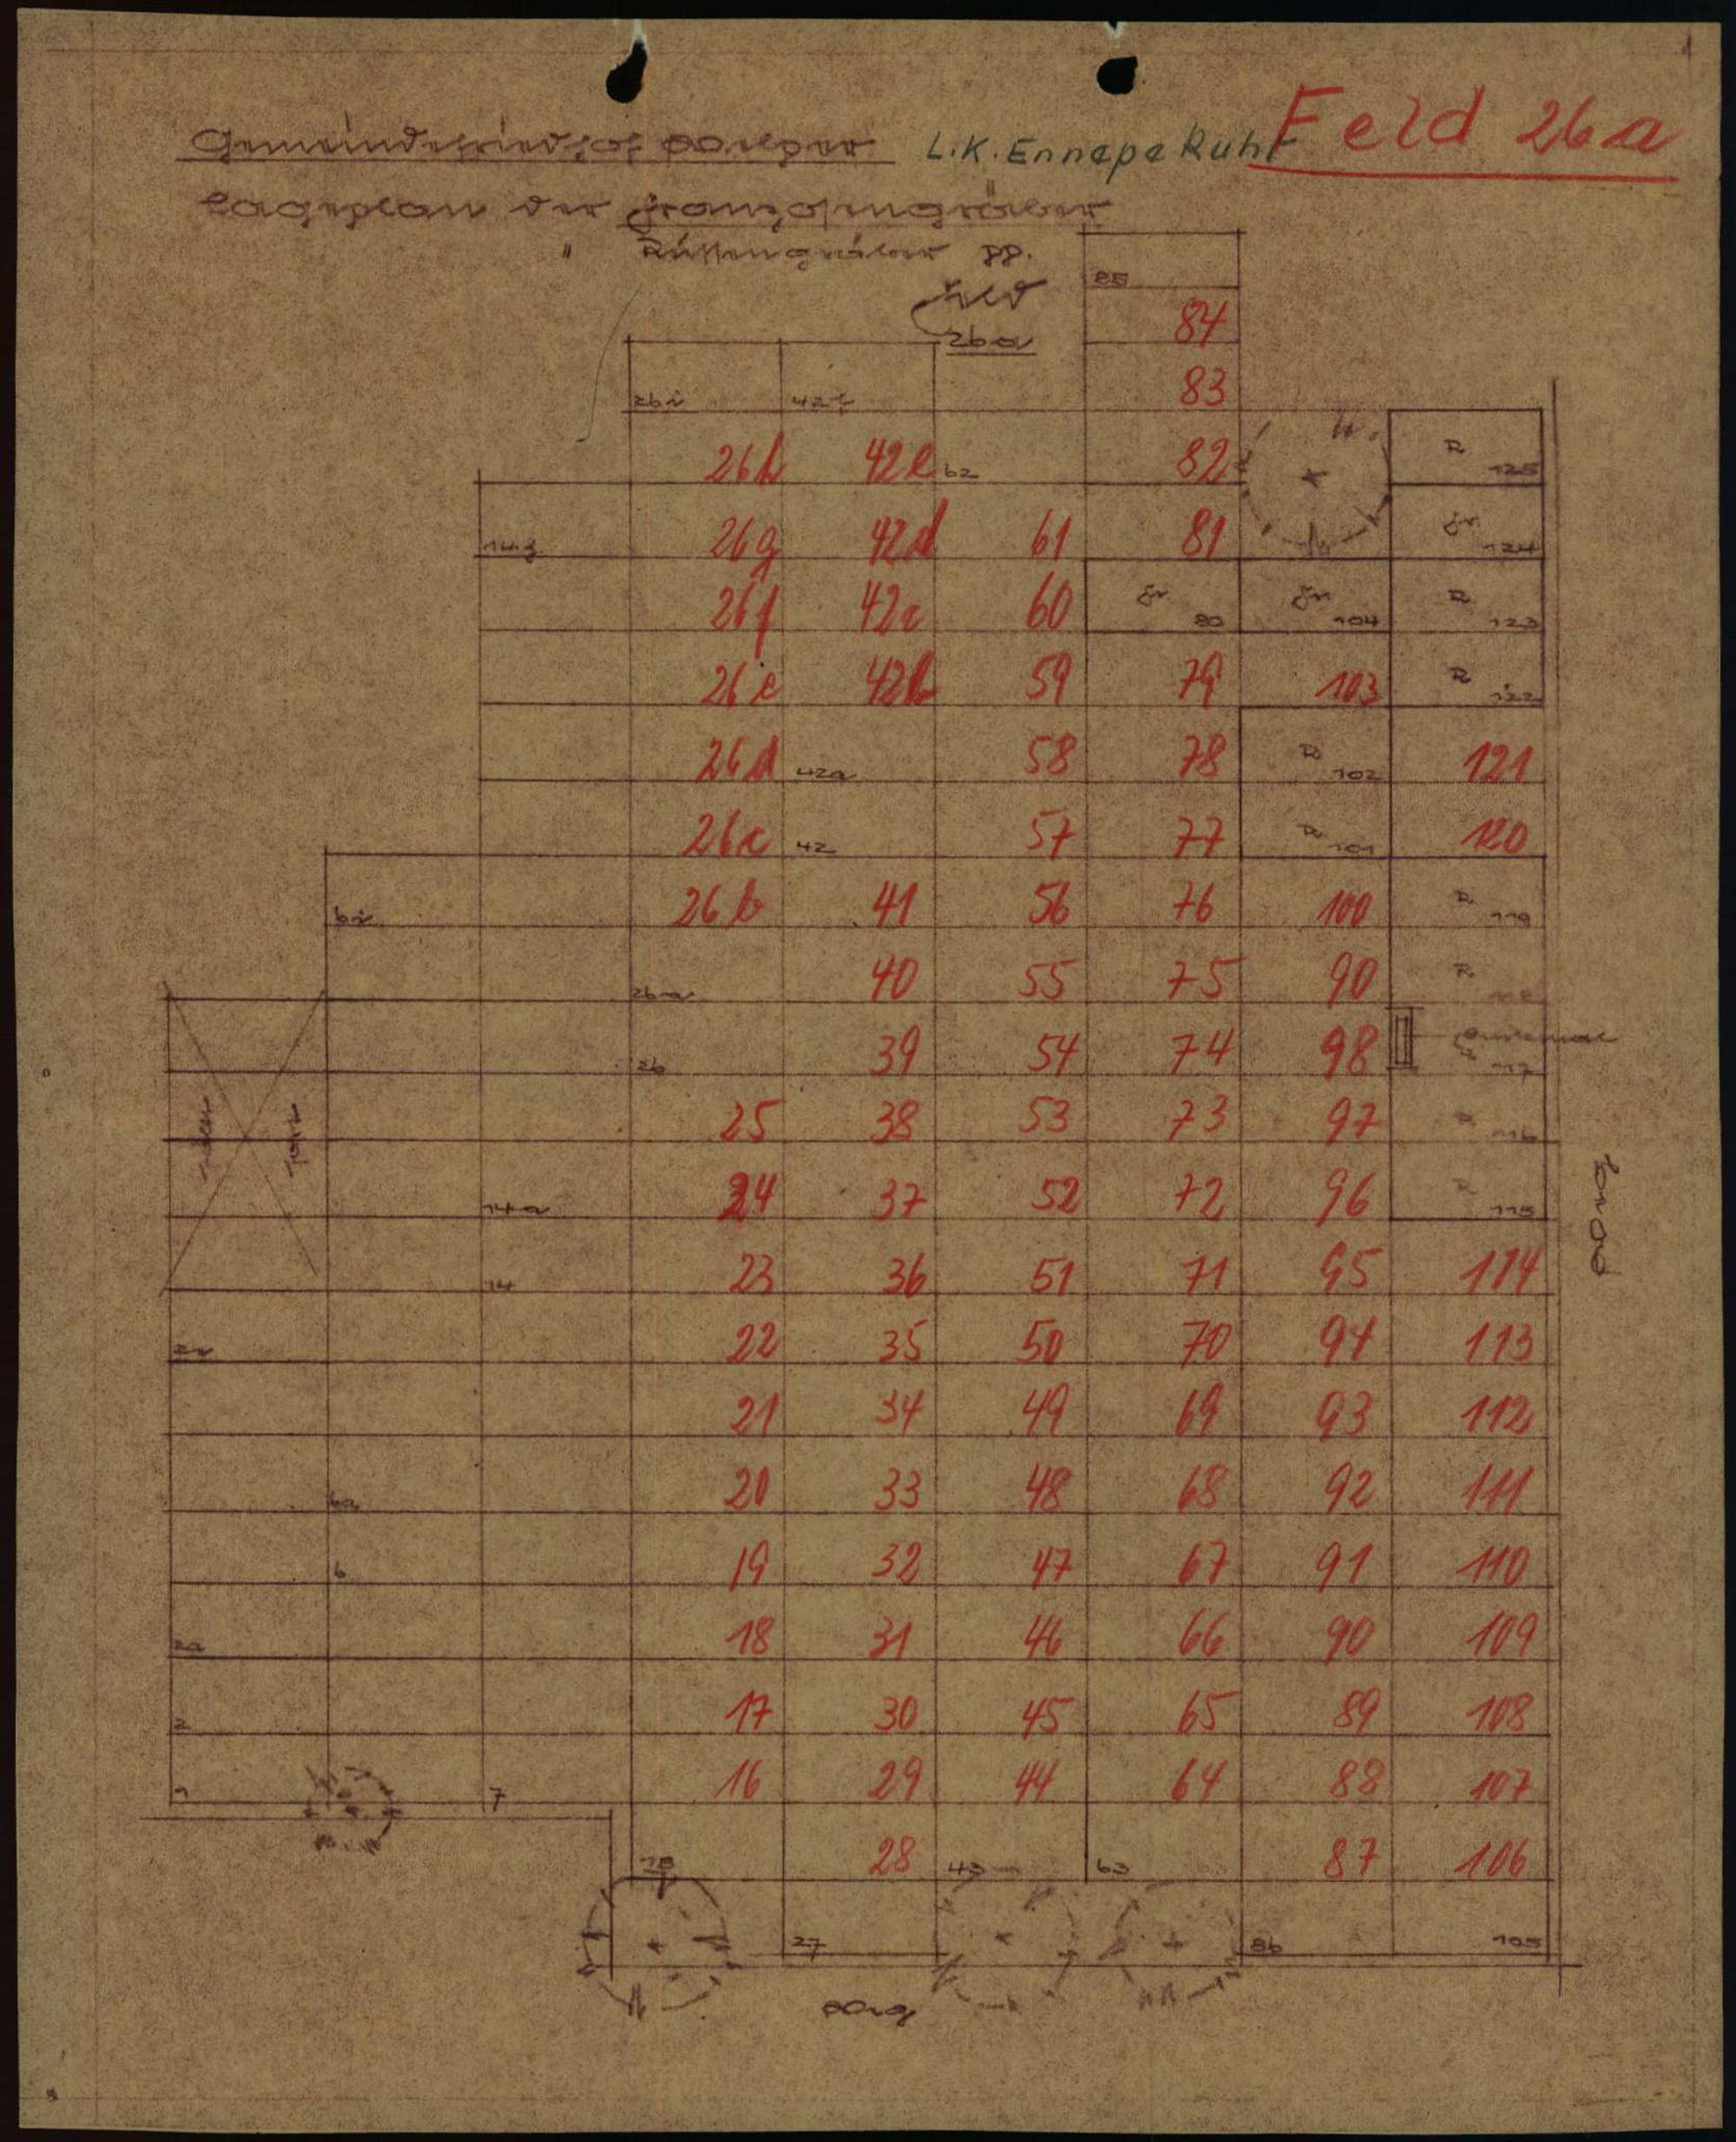 Feld 26a
Gemeindefriedhof L.K. Ennepe Ruhr
Lageplan der Franzosengräber
" Russengräber pp.
Feld
26a
85
84
26i 42f 83
26h 42e 62 82 R 125
14g 26g 42d 61 81 Fr. 124
26f 42c 60 Fr. 80 Fr. 104 R 123
26e 42b 59 79 103 R 122
26d 42a 58 78 R 102 121
26c 42 57 77 R 101 120
6i 26b 41 56 76 100 R 119
26a 40 55 75 90 R
26 39 54 74 98 117
25 38 53 73 97 116
14a 24 37 52 72 96 115
14 23 36 51 71 95 114
22 35 50 70 94 113
21 34 49 69 93 112
6a 20 33 48 68 92 111
6 19 32 47 67 91 110
2a 18 31 46 66 90 109
2 17 30 45 65 89 108
1 7 16 29 44 64 88 107
15 28 43 63 87 106
27 86 105
Weg
Weg